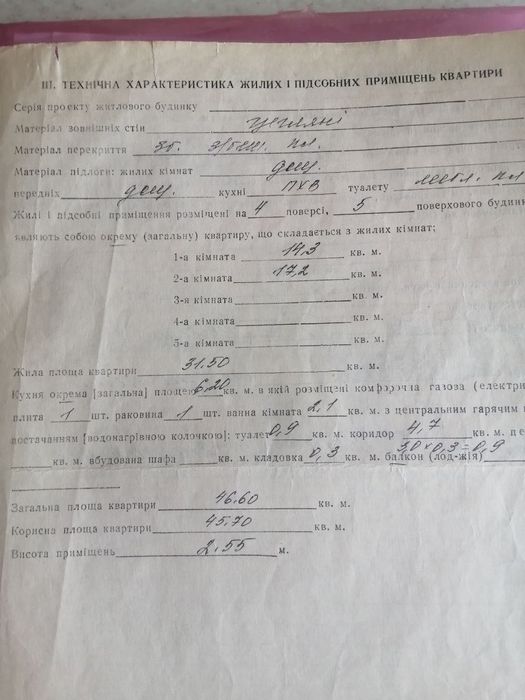 III. ТЕХНІЧНА ХАРАКТЕРИСТИКА ЖИЛИХ І ПІДСОБНИХ ПРИМІЩЕНЬ КВАРТИРИ
Серія проекту житлового будинку
Матеріал зовнішніх стін цегляні
Матеріал перекриття зб. пл.
Матеріал підлоги: жилих кімнат дощ.
передніх дощ. кухні ПХВ туалету пл
Жилі і підсобні приміщення розміщені на 4 поверсі, 5 поверхового будинку
являють собою окрему (загальну) квартиру, що складається з жилих кімнат:
1-а кімната 14,3 кв. м.
2-а кімната 17,2 кв. м.
3-я кімната кв. м.
4-а кімната кв. м.
5-а кімната кв. м.
Жила площа квартири 31.50 кв. м.
Кухня окрема [загальна] площею 6,20 кв. м. в якій розміщені комфорочна газова (електри
плита 1 шт. раковина 1 шт. ванна кімната 2,1 кв. м. з центральним гарячим
постачанням [водонагрівною колочкою]: туалет 0,9 кв. м. коридор 4,7 кв. м. пе
кв. м. вбудована шафа кв. м. кладовка 0,3 кв. м. балкон (лоджія) 3,0×0,3=0,9
Загальна площа квартири 46.60 кв. м.
Корисна площа квартири 45.70 кв. м.
Висота приміщень 2.55 м.